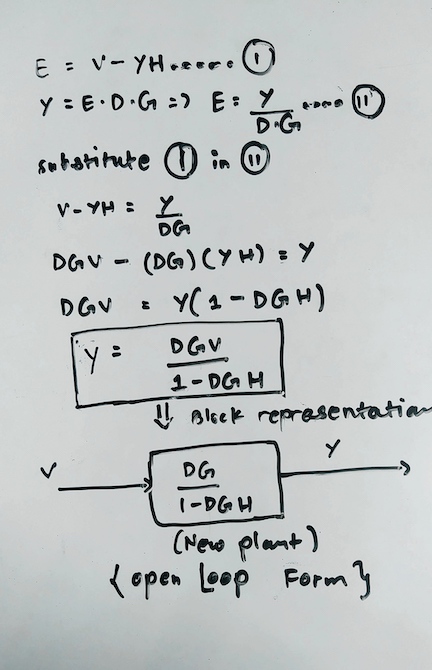 E = V - YH ..... (I)
Y = E·D·G => E = Y/D·G .... (II)
substitute (I) in (II)
V - YH = Y/DG
DGV - (DG)(YH) = Y
DGV = Y(1 - DGH)
Y = DGV/1 - DGH
⇓ Block representation
V DG/1 - DGH Y
(New plant)
{open Loop Form}